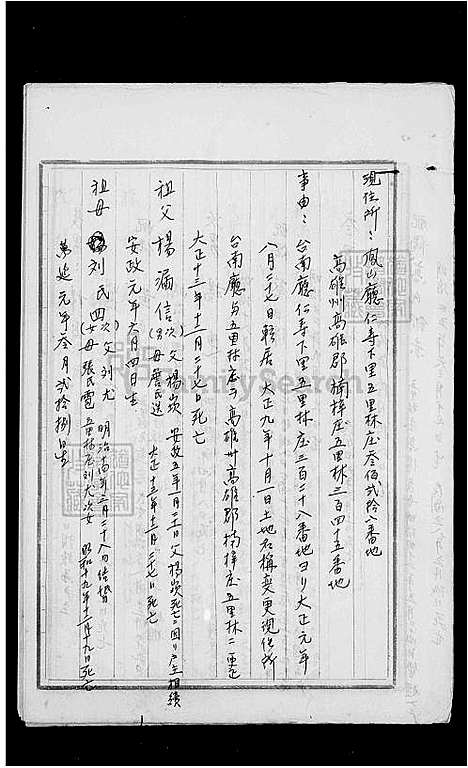 現住所：鳳山廳仁壽下里五里林庄叁佰弍拾八番地
高雄州高雄郡楠梓庄五里林三百四十五番地
事由：台南廳仁壽下里五里林庄三百二十八番地ヨリ大正元年
八月二十七日轉居 大正九年十月一日土地名稱変更現住所
台南廳 五里林庄ヲ高雄州高雄郡楠梓庄五里林ニ更正
大正十三年十二月二十七日死亡
祖父 楊滿信(次男) 父楊崁 母詹氏送 安政五年一月二十日父楊崁死亡ニ因リ戶主相續
大正十三年十二月二十七日死亡
安政元年六月四日生
祖母 劉氏四(次女) 父劉尤 母張氏 明治十四年三月二十八日結婚
五里林庄劉尤次女 昭和十九年十二月十九日死亡
萬延元年叁月弍拾捌日生